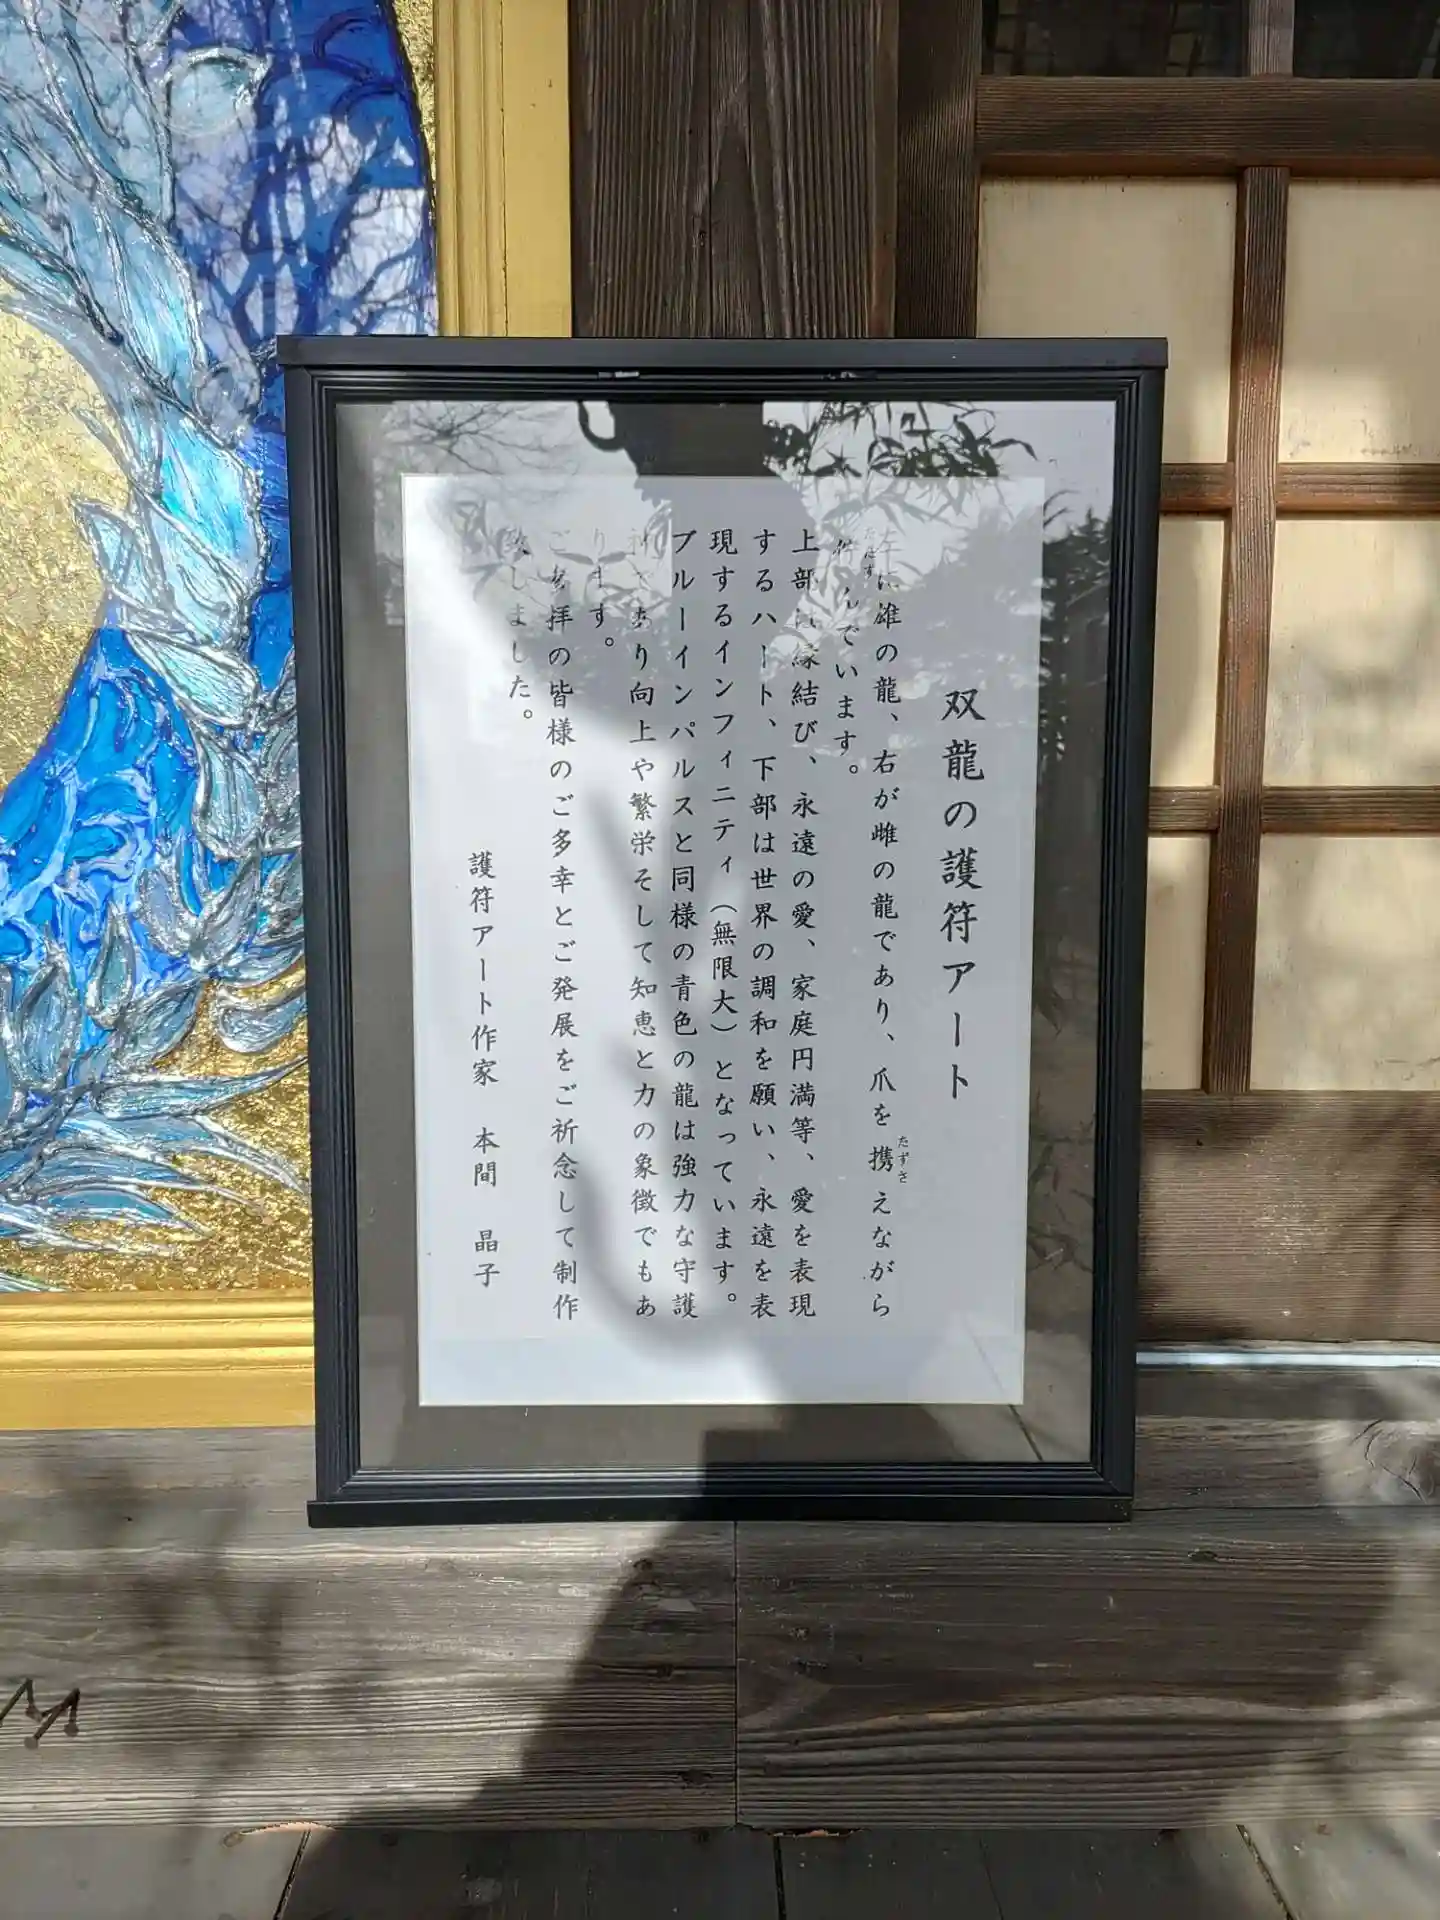 双龍の護符アート
左に雄の龍、右が雌の龍であり、爪を携えながら
たずさ
佇んでいます。
たたず
上部は縁結び、永遠の愛、家庭円満等、愛を表現
するハート、下部は世界の調和を願い、永遠を表
現するインフィニティ(無限大)となっています。
ブルーインパルスと同様の青色の龍は強力な守護
神であり向上や繁栄そして知恵と力の象徴でもあ
ります。
ご参拝の皆様のご多幸とご発展をご祈念して制作
致しました。
護符アート作家 本間 晶子